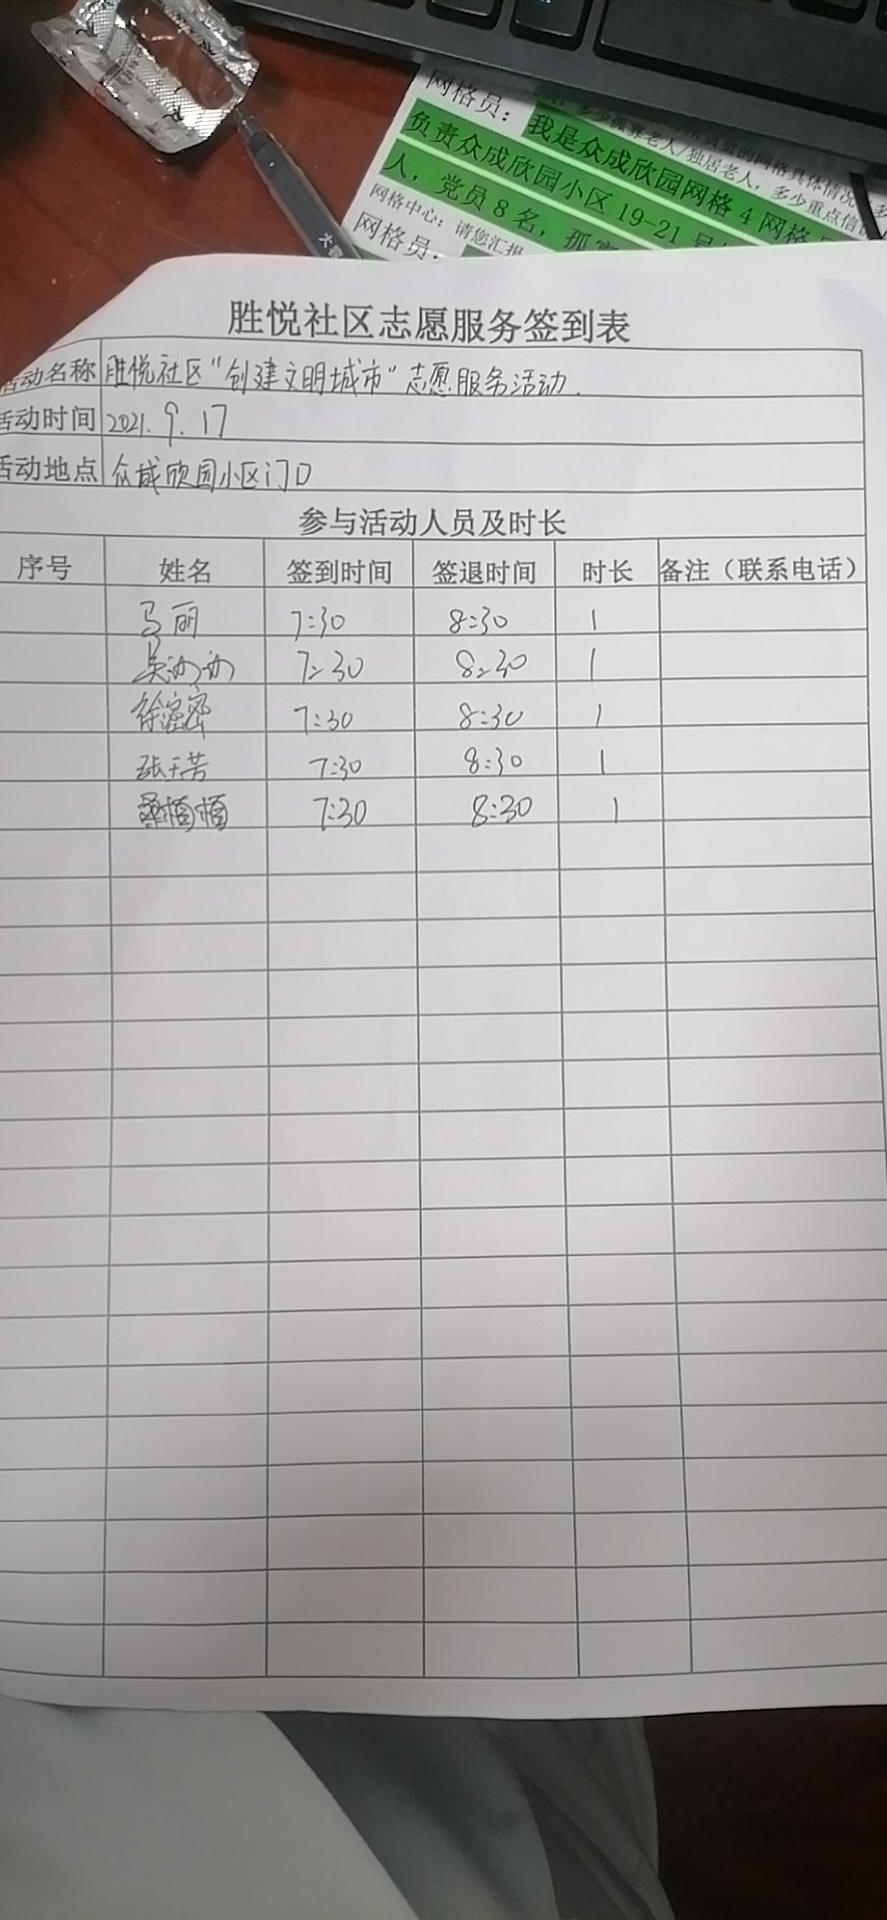 网格员：我是众成欣园网格4网格
负责众成欣园小区19-21号
人，党员8名，孤寡
网格中心：请您汇报
网格员：
胜悦社区志愿服务签到表
活动名称 胜悦社区“创建文明城市”志愿服务活动.
活动时间 2021.9.17
活动地点 众成欣园小区门口
参与活动人员及时长
序号 姓名 签到时间 签退时间 时长 备注（联系电话）
马丽 7:30 8:30 1
吴 7:30 8:30 1
徐密密 7:30 8:30 1
张天芳 7:30 8:30 1
桑栢栢 7:30 8:30 1